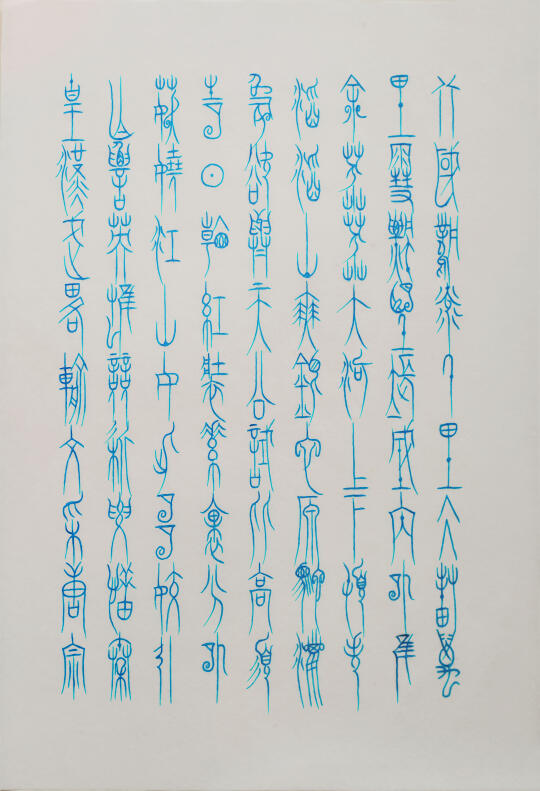 北國風光千里冰封萬
里雪飄望長城內外惟
余莽莽大河上下頓失
滔滔山舞銀蛇原馳蠟
象欲與天公試比高須
晴日看紅裝素裹分外
妖嬈江山如此多嬌引
無數英雄競折腰惜秦
皇漢武略輸文采唐宗